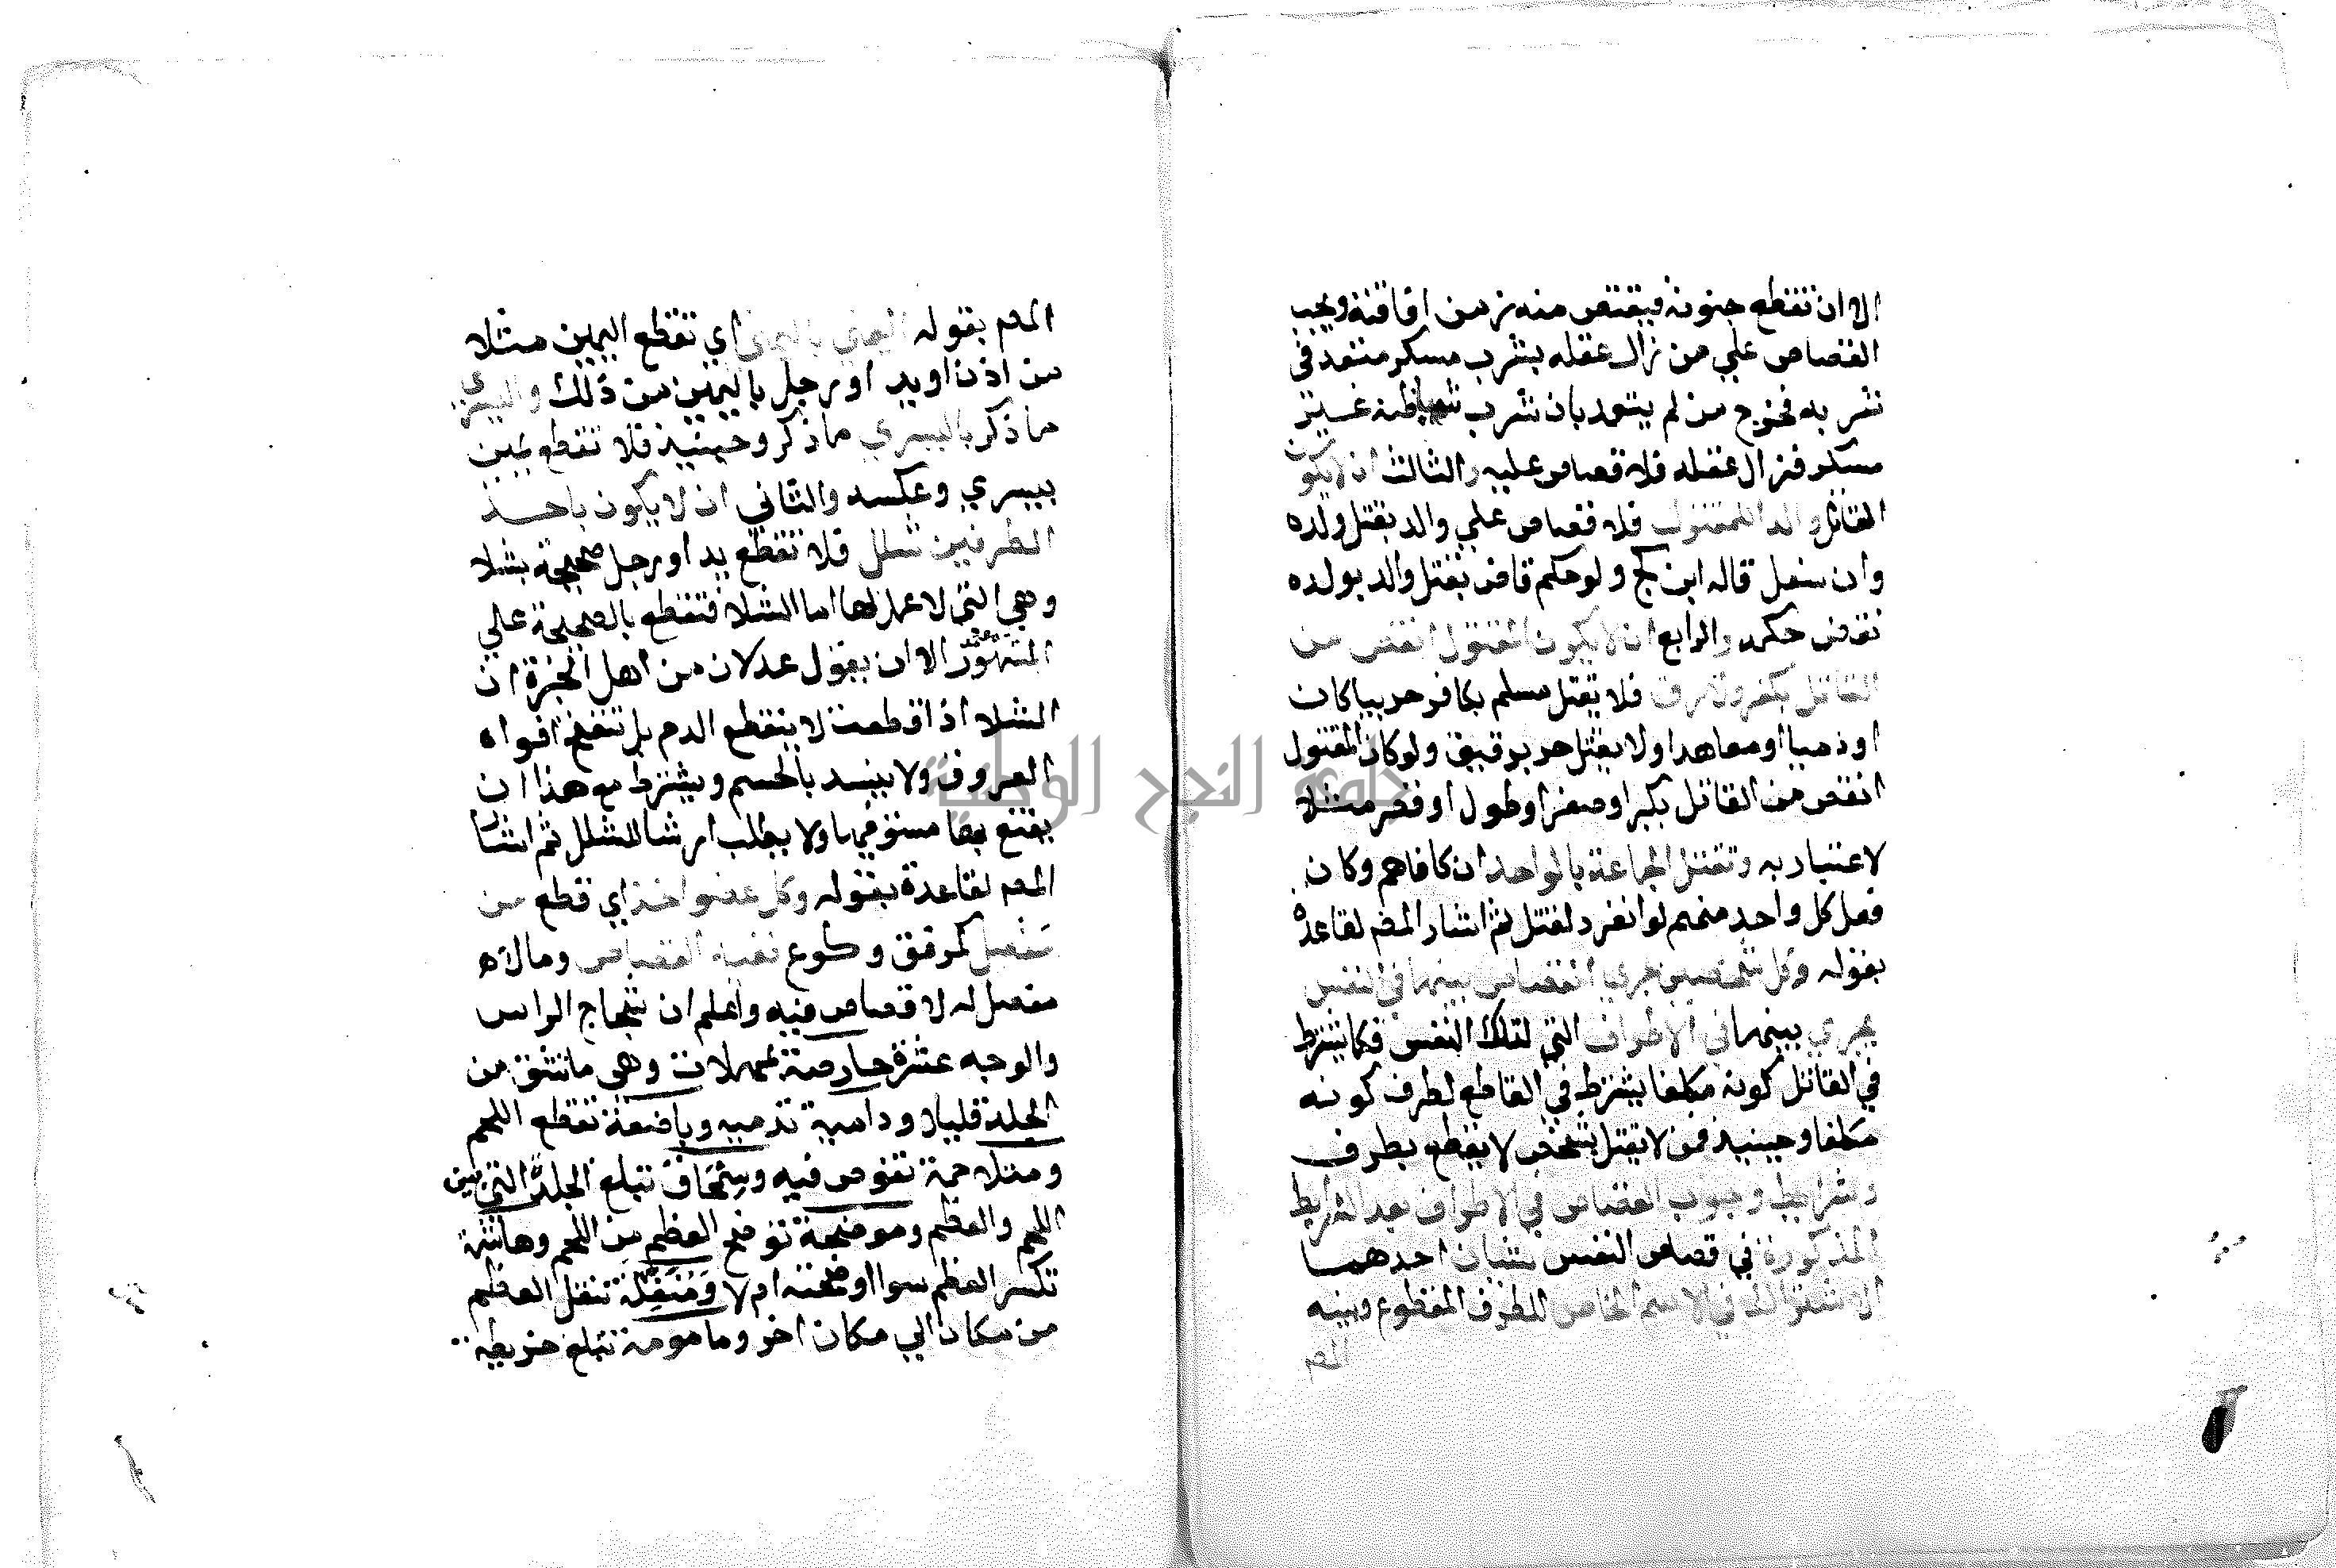 الا ان تقطع جنونه فيقتص منه زمن افاقته ويجب
القصاص علي من زال عقله بشرب مسكر متعد في
شربه فخرج من لم يتعد بان شرب شيا ظنه غير
مسكر فزال عقله فلا قصاص عليه والثالث ان لا يكون
القاتل والدا للمقتول فلا قصاص علي والد بقتل ولده
وان سفل قاله ابن كج ولو حكم قاض بقتل والد بولده
نقض حكمه والرابع ان لا يكون المقتول انقص من
القاتل بكفر او برق فلا يقتل مسلم بكافر حربيا كان
او ذميا او معاهدا ولا يقتل حر برقيق ولو كان المقتول
انقص من القاتل بكبر او صغر او طول او قصر مثلا
لا عتبار به وتقتل الجماعة بالواحد ان كافاهم وكان
فعل كل واحد منهم لو انفرد لقتل ثم اشار المص لقاعدة
بقوله وكل شخصين جري القصاص بينهما في النفس
يجري بينهما في الاطراف التي لتلك النفس فكما يشترط
في القاتل كونه مكلفا يشترط في القاطع لطرف كونه
مكلفا وحينيذ فمن لا يقتل بشخص لا يقطع بطرف
وشرايط وجوب القصاص في الاطراف بعد الشرايط
المذكورة في قصاص النفس شئيان احدهما
الاشتراك في الاسم الخاص للطرف المقطوع وبينه
المص
المص بقوله اليمني باليمني اي تقطع اليمين مثلا
من اذن او يد او رجل باليمين من ذلك واليسري
ما ذكر باليسري ما ذكر وحينيذ فلا تقطع يمين
بيسري وعكسه والثاني ان لا يكون باحد
الطرفين شلل فلا تقطع يد او رجل صحيحة بشلا
وهي التي لا عمل لها اما الشلا فتقطع بالصحيحة علي
المشهور الا ان يقول عدلان من اهل الخبرة ان
الشلا اذا قطعت لا ينقطع الدم بل تنفتح افواه
العروق ولا ينسد بالحسم ويشترط مع هذا ان
يقنع بها مستوفيها ولا يطلب ارشا للشلل ثم اشار
المص لقاعدة بقوله وكل عضو اخذ اي قطع من
مفصل كمرفق وكوع ففيه القصاص وما لا
مفصل له لا قصاص فيه واعلم ان شجاج الراس
والوجه عشرة حارصة بمهملات وهي ما تشق من
الجلد قليلا ودامية تدميه وباضعة تقطع اللحم
ومتلاحمة تغوص فيه وسمحاق تبلغ الجلدة التي بين
اللحم والعظم وموضحة توضح العظم من اللحم وهاشمة
تكسر العظم سوا اوضحته ام لا ومنقلة تنقل العظم
من مكان الي مكان اخر ومامومة تبلغ خريطة